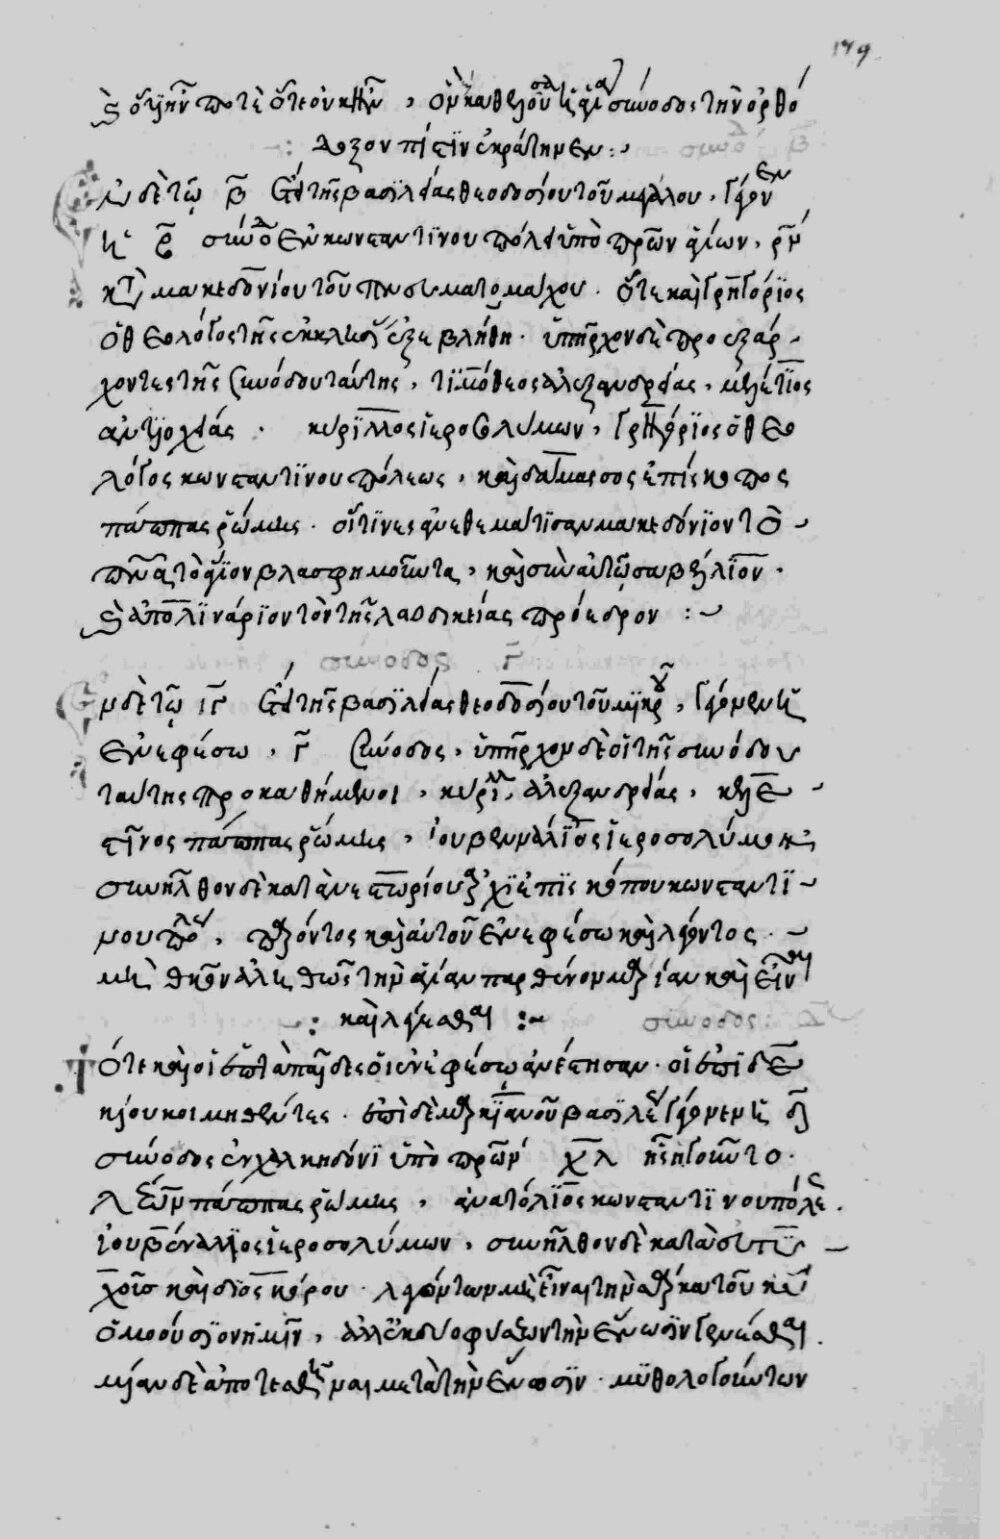 179
καὶ οὐχ ἦν ποτὲ ὅτε οὐκ ἦν, οὓς καθελοῦσα ἡ ἁγία σύνοδος τὴν ὀρθό
δοξον πίστιν ἐκράτησεν :
Ἐν δὲ τῷ β ἔτει τῆς βασιλείας θεοδοσίου τοῦ μεγάλου, γέγονεν
ἡ β σύνοδος ἐν κωνσταντίνου πόλει ὑπὸ πρῶν ἁγίων, ρν
κατὰ μακεδονίου τοῦ πνευματομάχου. ὅτε καὶ γρηγόριος
ὁ θεολόγος τῆς ἐκκλησίας ἐξεβλήθη. ὑπῆρχον δὲ προεξάρ
χοντες τῆς συνόδου ταύτης, τιμόθεος ἀλεξανδρείας, μελέτιος
ἀντιοχείας. κυρίλλος ἱεροσολύμων, γρηγόριος ὁ θεο
λόγος κωνσταντίνου πόλεως, καὶ δάμασος ἐπίσκοπος
πάππας ῥώμης. οἵτινες ἀνεθεμάτισαν μακεδόνιον τὸ
πνα τὸ ἅγιον βλασφημοῦντα, καὶ σὺν αὐτῷ σαβέλλιον.
καὶ ἀπολινάριον τὸν τῆς λαοδικείας πρόεδρον :
σύνοδος γ
Ἐν δὲ τῷ ιγ ἔτει τῆς βασιλείας θεοδοσίου τοῦ μικροῦ, γέγονεν ἡ
ἐν ἐφέσω, γ σύνοδος, ὑπῆρχον δὲ οἱ τῆς συνόδου
ταύτης προκαθήμενοι, κύριλλ ἀλεξανδρείας, κελε
στῖνος πάππας ῥώμης, ἰουβενάλιος ἱεροσολύμων
συνῆλθον δὲ κατὰ νεστωρίου ἀρχιεπισκόπου κωνσταντι
νουπόλεως, παρόντος καὶ αὐτοῦ ἐν ἐφέσω καὶ λέγοντος
μὴ θκον ἀληθῶς τὴν ἁγίαν παρθένον μαρίαν καὶ εἶναι
καὶ λέγεσθαι :
σύνοδος : Δ
Τότε καὶ οἱ ἑπτὰ παῖδες οἱ ἐν ἐφέσω ἀνέστησαν. οἱ ἐπὶ δε
κίου κοιμηθέντες. ἐπὶ δὲ μαρκιανοῦ βασιλέως γέγονεν ἡ δ
σύνοδος ἐν χαλκηδόνι ὑπὸ πρῶν χλ ἧς ἡγοῦντο.
λέων πάππας ῥώμης, ἀνατόλιος κωνσταντινουπόλεως.
ἰουβενάλιος ἱεροσολύμων, συνῆλθον δὲ κατὰ εὐτυ
χοῦς καὶ διοσκόρου. λεγόντων μὴ εἶναι τὴν σάρκα τοῦ κυ
ὁμοούσιον ἡμῖν, ἀλλ' ἐκ δύο φύσεων τὴν ἕνωσιν γενέσθαι.
μίαν δὲ ἀποτελεσθῆναι μετὰ τὴν ἕνωσιν. μυθολογούντων